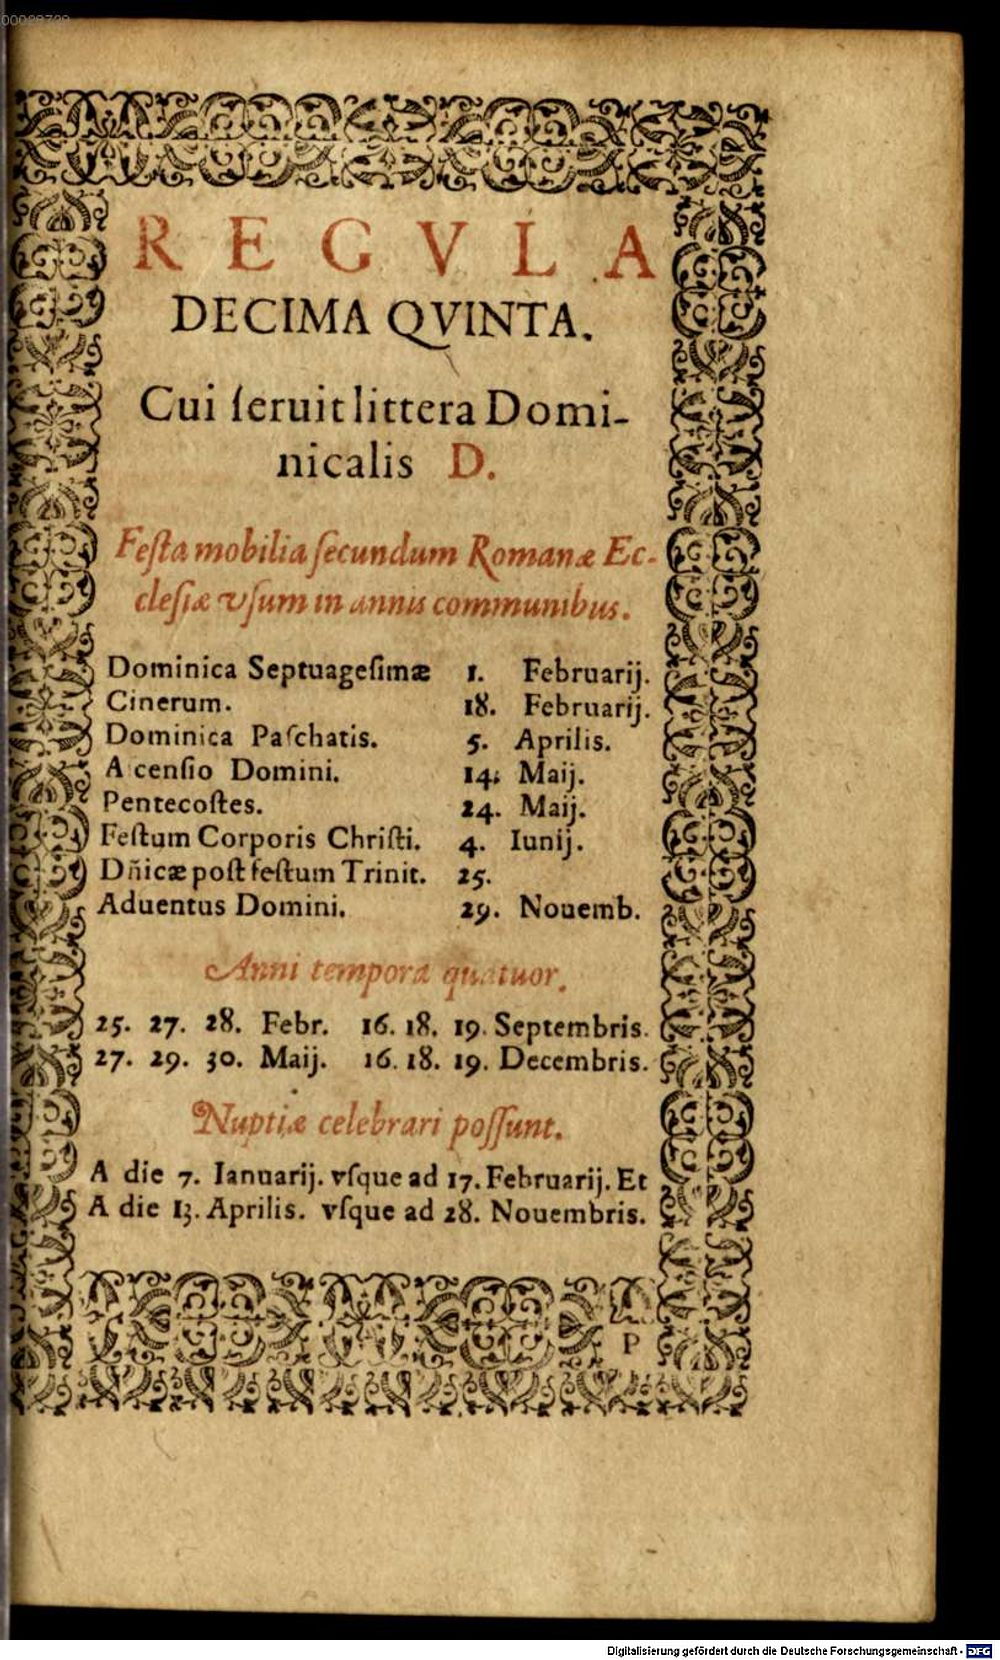 00028729
REGVLA
DECIMA QVINTA.
Cui ſeruit littera Domi-
nicalis D.
Feſta mobilia ſecundum Romanæ Ec-
cleſiæ vſum in annis communibus.
Dominica Septuageſimæ 1. Februarij.
Cinerum. 18. Februarij.
Dominica Paſchatis. 5. Aprilis.
A cenſio Domini. 14. Maij.
Pentecoſtes. 24. Maij.
Feſtum Corporis Chriſti. 4. Iunij.
Dñicæ poſt feſtum Trinit. 25.
Aduentus Domini. 29. Nouemb.
Anni tempora quatuor.
25. 27. 28. Febr. 16. 18. 19. Septembris.
27. 29. 30. Maij. 16. 18. 19. Decembris.
Nuptiæ celebrari poſſunt.
A die 7. Ianuarij. vſque ad 17. Februarij. Et
A die 13. Aprilis. vſque ad 28. Nouembris.
P
Digitalisierung gefördert durch die Deutsche Forschungsgemeinschaft - DFG